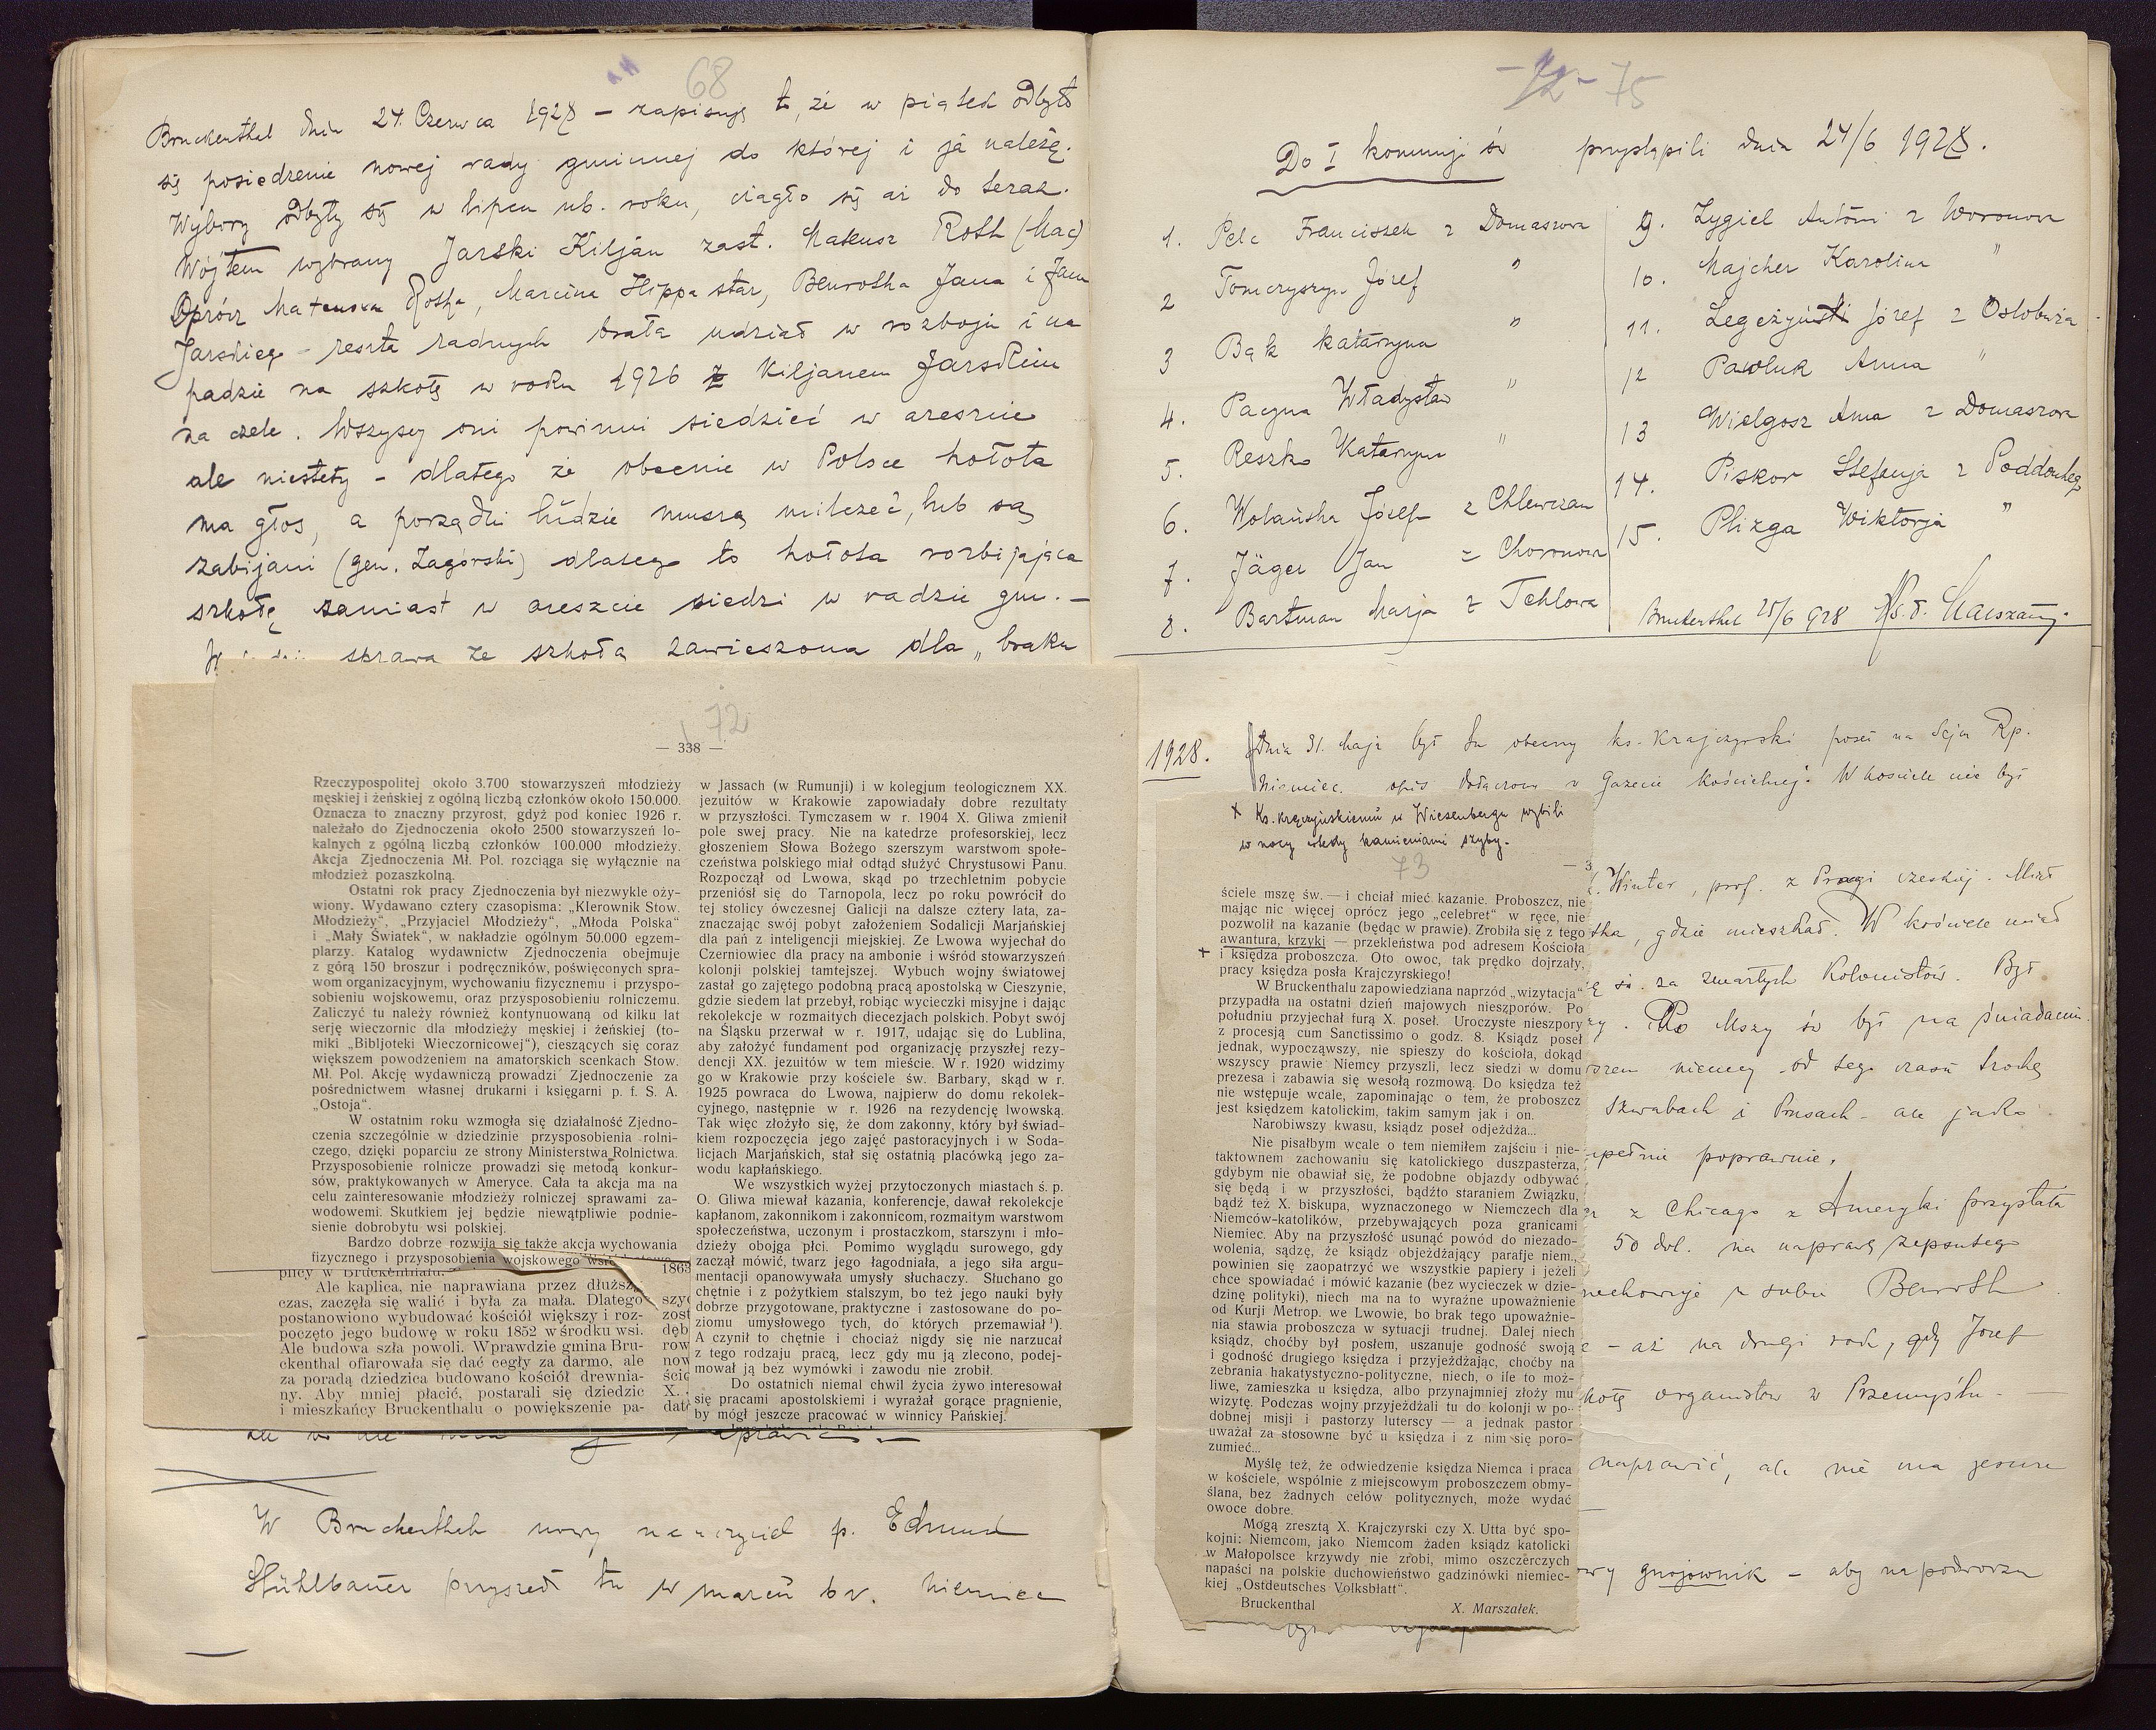 68
Bruckenthal dnia 24. Czerwca 1928 – zapisuję to, że w piątek odbyło
się posiedzenie nowej rady gminnej do której i ja należę.
Wybory odbyły się w lipcu ub. roku, ciągło się aż do teraz.
Wójtem wybrany Jarski Kiljan zast. Mateusz Roth (Mac)
Oprócz Mateusza Rotha, Marcina Hippa star, Benrotha Jana i Jana
Jarskiego – reszta radnych brała udział w rozboju i na
padzie na szkołę w roku 1926 z Kiljanem Jarskim
na czele. Wszyscy oni powinni siedzieć w areszcie
ale niestety – dlatego że obecnie w Polsce hołota
ma głos, a porządni ludzie muszą milczeć, lub są
zabijani (gen. Zagórski) dlatego to hołota rozbijająca
szkołę zamiast w areszcie siedzi w radzie gm. –
sprawa ze szkołą zawieszona dla „braku
72
— 338 —
Rzeczypospolitej około 3.700 stowarzyszeń młodzieży
męskiej i żeńskiej z ogólną liczbą członków około 150.000.
Oznacza to znaczny przyrost, gdyż pod koniec 1926 r.
należało do Zjednoczenia około 2500 stowarzyszeń lo-
kalnych z ogólną liczbą członków 100.000 młodzieży.
Akcja Zjednoczenia Mł. Pol. rozciąga się wyłącznie na
młodzież pozaszkolną.
Ostatni rok pracy Zjednoczenia był niezwykle oży-
wiony. Wydawano cztery czasopisma: „Kierownik Stow.
Młodzieży“, „Przyjaciel Młodzieży“, „Młoda Polska“
i „Mały Światek“, w nakładzie ogólnym 50.000 egzem-
plarzy. Katalog wydawnictw Zjednoczenia obejmuje
z górą 150 broszur i podręczników, poświęconych spra-
wom organizacyjnym, wychowaniu fizycznemu i przyspo-
sobieniu wojskowemu, oraz przysposobieniu rolniczemu.
Zaliczyć tu należy również kontynuowaną od kilku lat
serję wieczornic dla młodzieży męskiej i żeńskiej (to-
miki „Bibljoteki Wieczornicowej“), cieszących się coraz
większem powodzeniem na amatorskich scenkach Stow.
Mł. Pol. Akcję wydawniczą prowadzi Zjednoczenie za
pośrednictwem własnej drukarni i księgarni p. f. S. A.
„Ostoja“.
W ostatnim roku wzmogła się działalność Zjedno-
czenia szczególnie w dziedzinie przysposobienia rolni-
czego, dzięki poparciu ze strony Ministerstwa Rolnictwa.
Przysposobienie rolnicze prowadzi się metodą konkur-
sów, praktykowanych w Ameryce. Cała ta akcja ma na
celu zainteresowanie młodzieży rolniczej sprawami za-
wodowemi. Skutkiem jej będzie niewątpliwie podnie-
sienie dobrobytu wsi polskiej.
Bardzo dobrze rozwija się także akcja wychowania
fizycznego i przysposobienia wojskowego
plicy w Bruckenthalu.
Ale kaplica, nie naprawiana przez dłuższy
czas, zaczęła się walić i była za mała. Dlatego
postanowiono wybudować kościół większy i roz-
poczęto jego budowę w roku 1852 w środku wsi.
Ale budowa szła powoli. Wprawdzie gmina Bru-
ckenthal ofiarowała się dać cegły za darmo, ale
za poradą dziedzica budowano kościół drewnia-
ny. Aby mniej płacić, postarali się dziedzic
i mieszkańcy Bruckenthalu o powiększenie pa-
1863
szyc
zost
dęb
row
now
ścic
X.
date
w Jassach (w Rumunji) i w kolegjum teologicznem XX.
jezuitów w Krakowie zapowiadały dobre rezultaty
w przyszłości. Tymczasem w r. 1904 X. Gliwa zmienił
pole swej pracy. Nie na katedrze profesorskiej, lecz
głoszeniem Słowa Bożego szerszym warstwom społe-
czeństwa polskiego miał odtąd służyć Chrystusowi Panu.
Rozpoczął od Lwowa, skąd po trzechletnim pobycie
przeniósł się do Tarnopola, lecz po roku powrócił do
tej stolicy ówczesnej Galicji na dalsze cztery lata, za-
znaczając swój pobyt założeniem Sodalicji Marjańskiej
dla pań z inteligencji miejskiej. Ze Lwowa wyjechał do
Czerniowiec dla pracy na ambonie i wśród stowarzyszeń
kolonji polskiej tamtejszej. Wybuch wojny światowej
zastał go zajętego podobną pracą apostolską w Cieszynie,
gdzie siedem lat przebył, robiąc wycieczki misyjne i dając
rekolekcje w rozmaitych diecezjach polskich. Pobyt swój
na Śląsku przerwał w r. 1917, udając się do Lublina,
aby założyć fundament pod organizację przyszłej rezy-
dencji XX. jezuitów w tem mieście. W r. 1920 widzimy
go w Krakowie przy kościele św. Barbary, skąd w r.
1925 powraca do Lwowa, najpierw do domu rekolek-
cyjnego, następnie w r. 1926 na rezydencję lwowską.
Tak więc złożyło się, że dom zakonny, który był świad-
kiem rozpoczęcia jego zajęć pastoracyjnych i w Soda-
licjach Marjańskich, stał się ostatnią placówką jego za-
wodu kapłańskiego.
We wszystkich wyżej przytoczonych miastach ś. p.
O. Gliwa miewał kazania, konferencje, dawał rekolekcje
kapłanom, zakonnikom i zakonnicom, rozmaitym warstwom
społeczeństwa, uczonym i prostaczkom, starszym i mło-
dzieży obojga płci. Pomimo wyglądu surowego, gdy
zaczął mówić, twarz jego łagodniała, a jego siła argu-
mentacji opanowywała umysły słuchaczy. Słuchano go
chętnie i z pożytkiem stalszym, bo też jego nauki były
dobrze przygotowane, praktyczne i zastosowane do po-
ziomu umysłowego tych, do których przemawiał¹).
A czynił to chętnie i chociaż nigdy się nie narzucał
z tego rodzaju pracą, lecz gdy mu ją zlecono, podej-
mował ją bez wymówki i zawodu nie zrobił.
Do ostatnich niemal chwil życia żywo interesował
się pracami apostolskiemi i wyrażał gorące pragnienie,
by mógł jeszcze pracować w winnicy Pańskiej.
W Bruckenthalu nowy nauczyciel p. Edmund
Hühlbauer przyszedł tu w marcu b.r. Niemiec
75
Do I komunji św przystąpili dnia 24/6 1928.
1. Pelc Franciszek z Domaszowa
2 Tomczyszyn Józef "
3 Bąk Katarzyna "
4. Pacyna Władysław "
5. Reszko Katarzyna "
6. Wolańska Józef z Chlewczan
7. Jäger Jan z Choronowa
8. Bartman Marja z Tehlowa
9. Zygiel Antoni z Woronowa
10. Majcher Karolina "
11. Legeżyński Józef z Ostobuża
12 Pawluk Anna "
13 Wielgosz Anna z Domaszowa
14. Piskor Stefanja z Poddubiec
15. Plizga Wiktorja "
Bruckenthal 25/6 928 Ks. J. Marszałek
1928. Dnia 31. Maja był tu obecny ks. Krajczyrski poseł na Sejm Rp.
Niemiec. opis dołączony z Gazecie Kościelnej. W kościele nie był
+ Ks. Krajczyrskiemu w Wiesenbergu wybili
w nocy wtedy kamieniami szyby.
73
— 3
ściele mszę św. — i chciał mieć kazanie. Proboszcz, nie
mając nic więcej oprócz jego „celebret“ w ręce, nie
pozwolił na kazanie (będąc w prawie). Zrobiła się z tego
awantura, krzyki — przekleństwa pod adresem Kościoła
+ i księdza proboszcza. Oto owoc, tak prędko dojrzały,
pracy księdza posła Krajczyrskiego!
W Bruckenthalu zapowiedziana naprzód „wizytacja“
przypadła na ostatni dzień majowych nieszporów. Po
południu przyjechał furą X. poseł. Uroczyste nieszpory
z procesją cum Sanctissimo o godz. 8. Ksiądz poseł
jednak, wypocząwszy, nie spieszy do kościoła, dokąd
wszyscy prawie Niemcy przyszli, lecz siedzi w domu
prezesa i zabawia się wesołą rozmową. Do księdza też
nie wstępuje wcale, zapominając o tem, że proboszcz
jest księdzem katolickim, takim samym jak i on.
Narobiwszy kwasu, ksiądz poseł odjeżdża...
Nie pisałbym wcale o tem niemiłem zajściu i nie-
taktownem zachowaniu się katolickiego duszpasterza,
gdybym nie obawiał się, że podobne objazdy odbywać
się będą i w przyszłości, bądźto staraniem Związku,
bądź też X. biskupa, wyznaczonego w Niemczech dla
Niemców-katolików, przebywających poza granicami
Niemiec. Aby na przyszłość usunąć powód do niezado-
wolenia, sądzę, że ksiądz objeżdżający parafje niem.,
powinien się zaopatrzyć we wszystkie papiery i jeżeli
chce spowiadać i mówić kazanie (bez wycieczek w dzie-
dzinę polityki), niech ma na to wyraźne upoważnienie
od Kurji Metrop. we Lwowie, bo brak tego upoważnie-
nia stawia proboszcza w sytuacji trudnej. Dalej niech
ksiądz, choćby był posłem, uszanuje godność swoją
i godność drugiego księdza i przyjeżdżając, choćby na
zebrania hakatystyczno-polityczne, niech, o ile to moż-
liwe, zamieszka u księdza, albo przynajmniej złoży mu
wizytę. Podczas wojny przyjeżdżali tu do kolonji w po-
dobnej misji i pastorzy luterscy — a jednak pastor
uważał za stosowne być u księdza i z nim się poro-
zumieć...
Myślę też, że odwiedzenie księdza Niemca i praca
w kościele, wspólnie z miejscowym proboszczem obmy-
ślana, bez żadnych celów politycznych, może wydać
owoce dobre.
Mogą zresztą X. Krajczyrski czy X. Utta być spo-
kojni: Niemcom, jako Niemcom żaden ksiądz katolicki
w Małopolsce krzywdy nie zrobi, mimo oszczerczych
napaści na polskie duchowieństwo gadzinówki niemiec-
kiej „Ostdeutsches Volksblatt“.
Bruckenthal X. Marszałek.
Winter, prof. z Pragi czeskiej. Miał
gdzie mieszkał. W kościele miał
św. za zmarłych Kolonistów. Był
Po Mszy św był na śniadaniu.
niemcy od tego czasu trochę
Szwabach i Prusach – ale jako
poprawnie.
z Chicago z Ameryki przysłała
50 dol. na naprawę zepsutego
u siebie Benroth
– aż na drugi rok, gdy Józef
organistów w Przemyślu. –
naprawić, ale nie ma jeszcze
gnojownik – aby na podwórzu